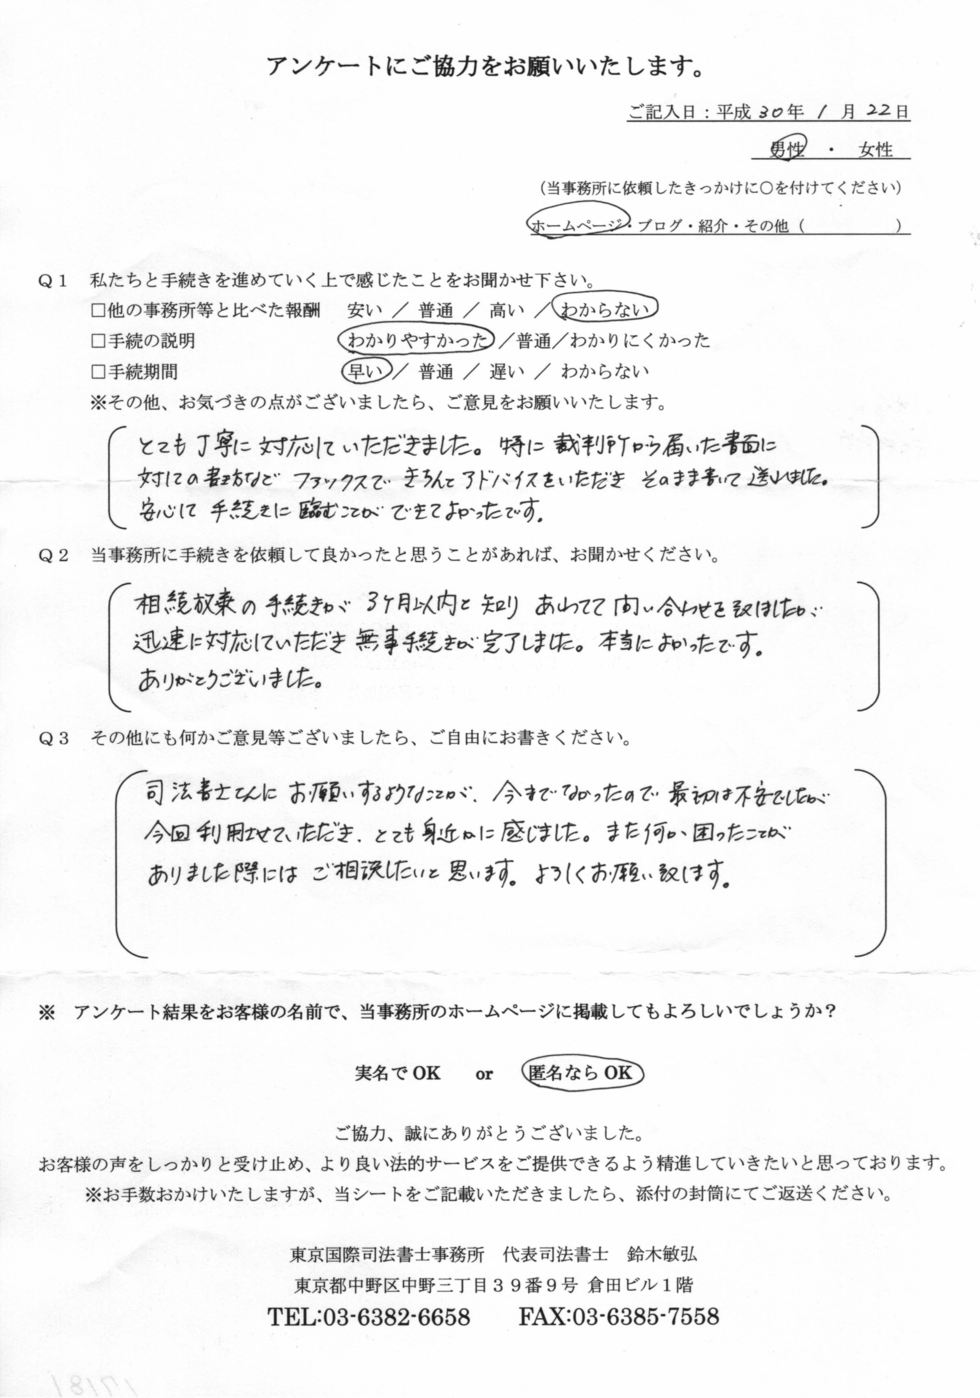 アンケートにご協力をお願いいたします。
ご記入日：平成 30年 1 月 22日
男性 ・ 女性
（当事務所に依頼したきっかけに○を付けてください）
ホームページ・ブログ・紹介・その他（　　　　　）
Ｑ１　私たちと手続きを進めていく上で感じたことをお聞かせ下さい。
□他の事務所等と比べた報酬　安い ／ 普通 ／ 高い ／ わからない
□手続の説明　わかりやすかった ／普通／わかりにくかった
□手続期間　早い ／ 普通 ／ 遅い ／ わからない
※その他、お気づきの点がございましたら、ご意見をお願いいたします。
とても丁寧に対応していただきました。特に裁判所から届いた書面に
対しての書き方など ファックスで きちんとアドバイスをいただき そのまま書いて送りました。
安心して 手続きに 臨むことが できてよかったです。
Ｑ２　当事務所に手続きを依頼して良かったと思うことがあれば、お聞かせください。
相続放棄の手続きが 3ヶ月以内と知り あわてて 問い合わせを致しましたが
迅速に対応していただき 無事手続きが完了しました。本当によかったです。
ありがとうございました。
Ｑ３　その他にも何かご意見等ございましたら、ご自由にお書きください。
司法書士さんに お願いするようなことが、今までなかったので 最初は不安でしたが
今回利用させていただき、とても身近かに感じました。また何か困ったことが
ありました際には ご相談したいと思います。よろしくお願い致します。
※　アンケート結果をお客様の名前で、当事務所のホームページに掲載してもよろしいでしょうか？
実名でOK　or　匿名ならOK
ご協力、誠にありがとうございました。
お客様の声をしっかりと受け止め、より良い法的サービスをご提供できるよう精進していきたいと思っております。
※お手数おかけいたしますが、当シートをご記載いただきましたら、添付の封筒にてご返送ください。
東京国際司法書士事務所　代表司法書士　鈴木敏弘
東京都中野区中野三丁目３９番９号 倉田ビル１階
TEL:03-6382-6658　FAX:03-6385-7558